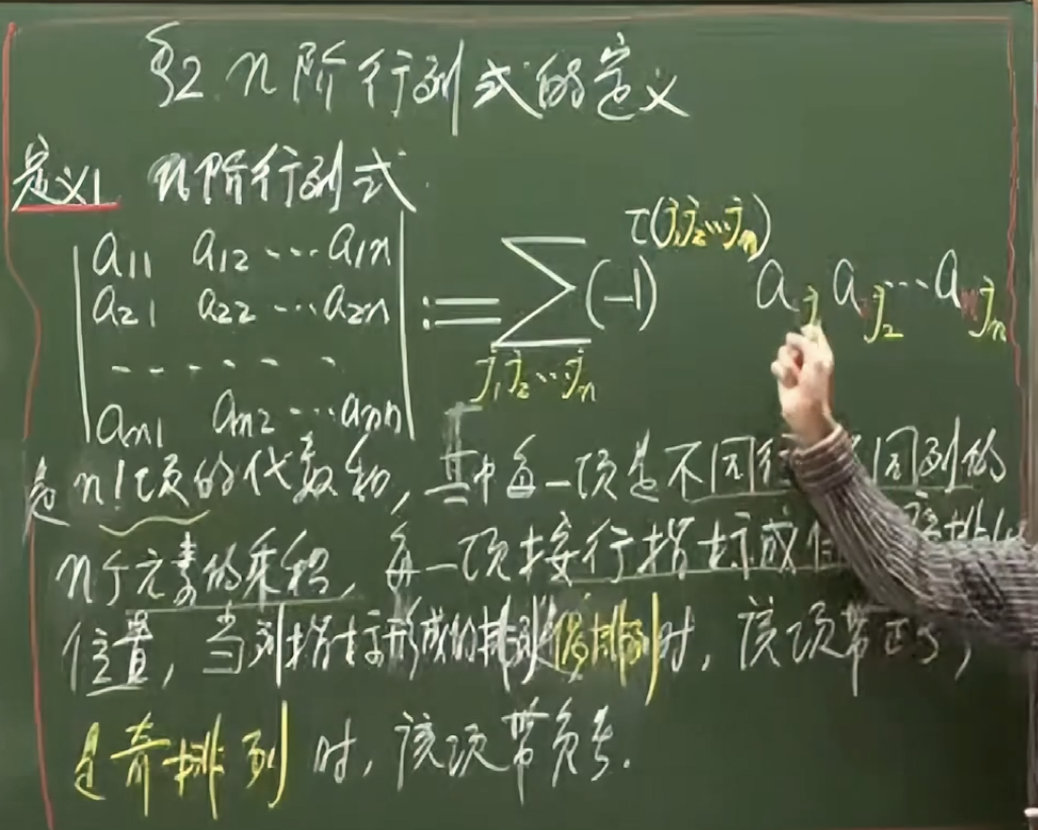 §2 n阶行列式的定义
定义1 n阶行列式
a11 a12 ··· a1n
a21 a22 ··· a2n
· · · · · ·
an1 an2 ··· ann
:= ∑ (-1) τ(j1j2···jn) a j1 a j2 ··· a jn
j1j2···jn
是n!项的代数和, 其中每一项是不同行 同列的
n个元素的乘积, 每一项按行指标成
位置, 当列指标形成的排列是偶排列时, 该项带正号,
是奇排列时, 该项带负号.